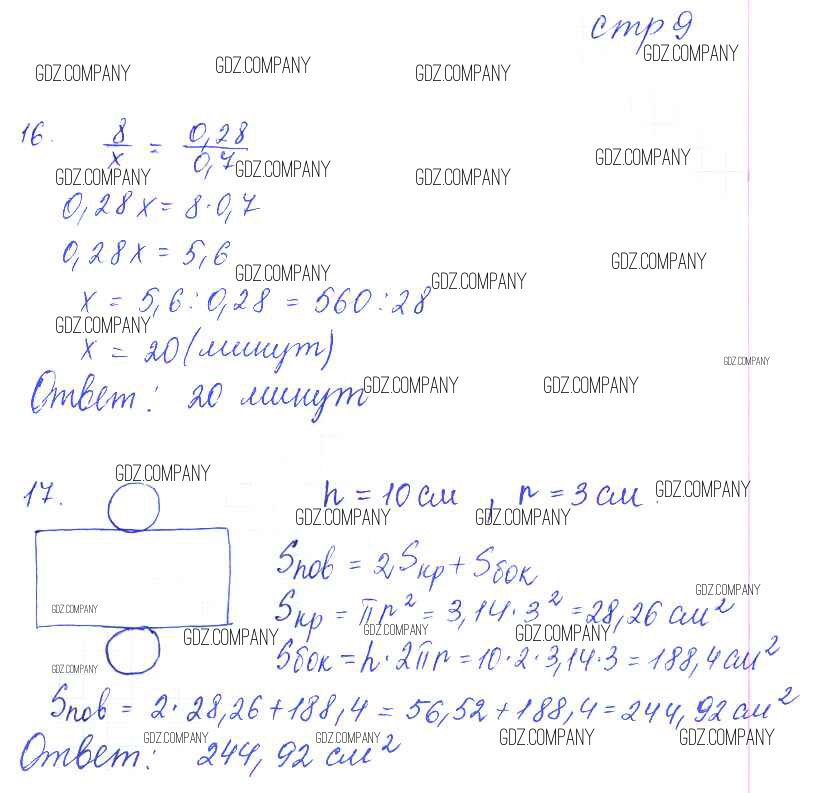 стр 9
GDZ.COMPANY
GDZ.COMPANY GDZ.COMPANY GDZ.COMPANY
16. 8/x = 0,28/0,7
GDZ.COMPANY GDZ.COMPANY GDZ.COMPANY GDZ.COMPANY
0,28x = 8·0,7
0,28x = 5,6
GDZ.COMPANY GDZ.COMPANY GDZ.COMPANY
x = 5,6:0,28 = 560:28
GDZ.COMPANY
x = 20 (минут)
GDZ.COMPANY
Ответ: 20 минут
GDZ.COMPANY GDZ.COMPANY
GDZ.COMPANY
17. h = 10 см, r = 3 см.
GDZ.COMPANY GDZ.COMPANY GDZ.COMPANY
Sпов = 2Sкр + Sбок
GDZ.COMPANY
Sкр = πr² = 3,14·3² = 28,26 см²
GDZ.COMPANY GDZ.COMPANY GDZ.COMPANY GDZ.COMPANY
Sбок = h·2πr = 10·2·3,14·3 = 188,4 см²
GDZ.COMPANY
Sпов = 2·28,26 + 188,4 = 56,52 + 188,4 = 244,92 см²
GDZ.COMPANY GDZ.COMPANY GDZ.COMPANY GDZ.COMPANY
Ответ: 244,92 см²